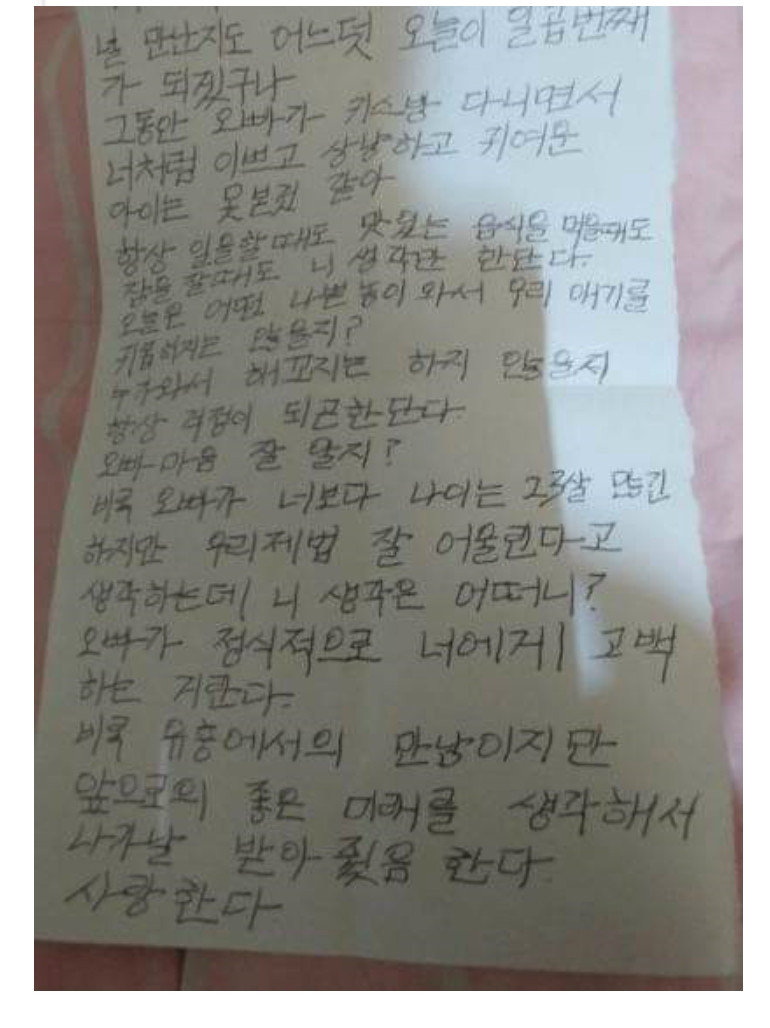 널 만난지도 어느덧 오늘이 일곱번째
가 되짔구나
그동안 오빠가 키스방 다니면서
너처럼 이쁘고 상냥하고 귀여운
아이는 못본것 같아
항상 일을할때도 맛있는 음식을 먹을때도
잠을 잘때도 니 생각만 한단다.
오늘은 어떤 나쁜놈이 와서 우리 애기를
않을지?
누가와서 해꼬지는 하지 않을지
항상 걱정이 되곤한단다.
오빠마음 잘 알지?
비록 오빠가 너보다 나이는 23살 많긴
하지만 우리제법 잘 어울린다고
생각하는데 니 생각은 어떠니?
오빠가 정식적으로 너에게 고백
하는 거란다.
비록 유흥에서의 만남이지만
앞으로의 좋은 미래를 생각해서
니가날 받아줬음 한다
사랑한다